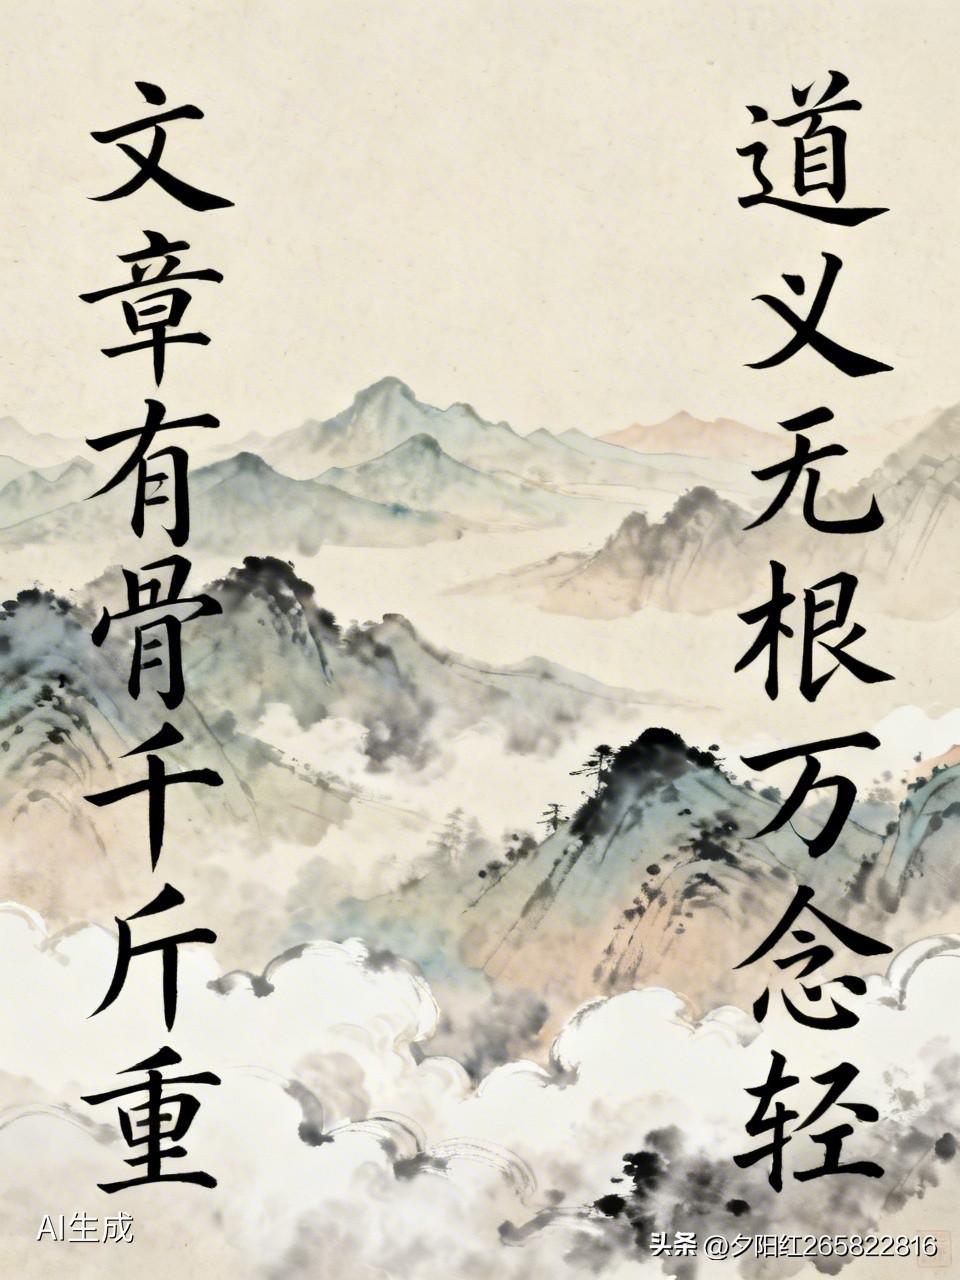 道义无根万念轻
文章有骨千斤重
AI生成
头条 @夕阳红265822816